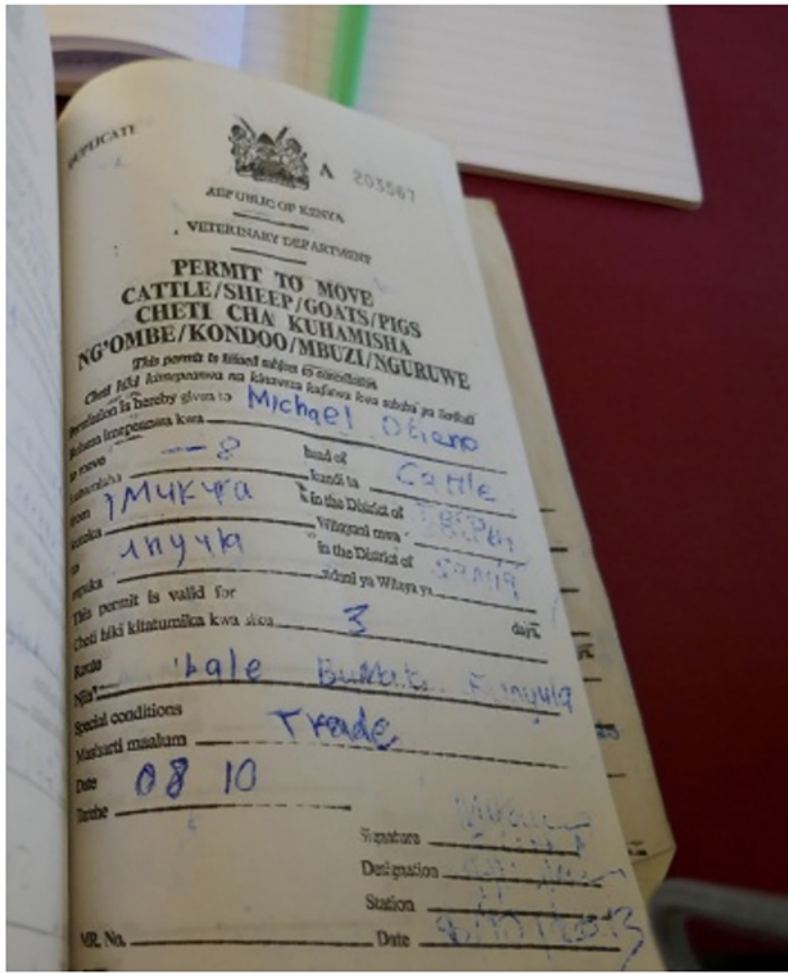 DUPLICATE
A 203567
REPUBLIC OF KENYA
VETERINARY DEPARTMENT
PERMIT TO MOVE
CATTLE/SHEEP/GOATS/PIGS
CHETI CHA KUHAMISHA
NG'OMBE/KONDOO/MBUZI/NGURUWE
This permit is issued subject to
Cheti hiki kimepeanwa na kinaweza kufutwa kwa sababu ya
Permission is hereby given to Michael Otieno
Ruhusa imepeanwa kwa
to move — 8 head of Cattle
kuhamisha kundi la
from in the District of
kutoka Wilayani mwa
to in the District of Samia
mpaka ndani ya Wilaya ya
This permit is valid for 3 days
Cheti hiki kitatumika kwa siku
Route Funyula
Njia
Special conditions Trade
Masharti maalum
Date 08 10
Tarehe
Signature
Designation
Station
MR. No. Date